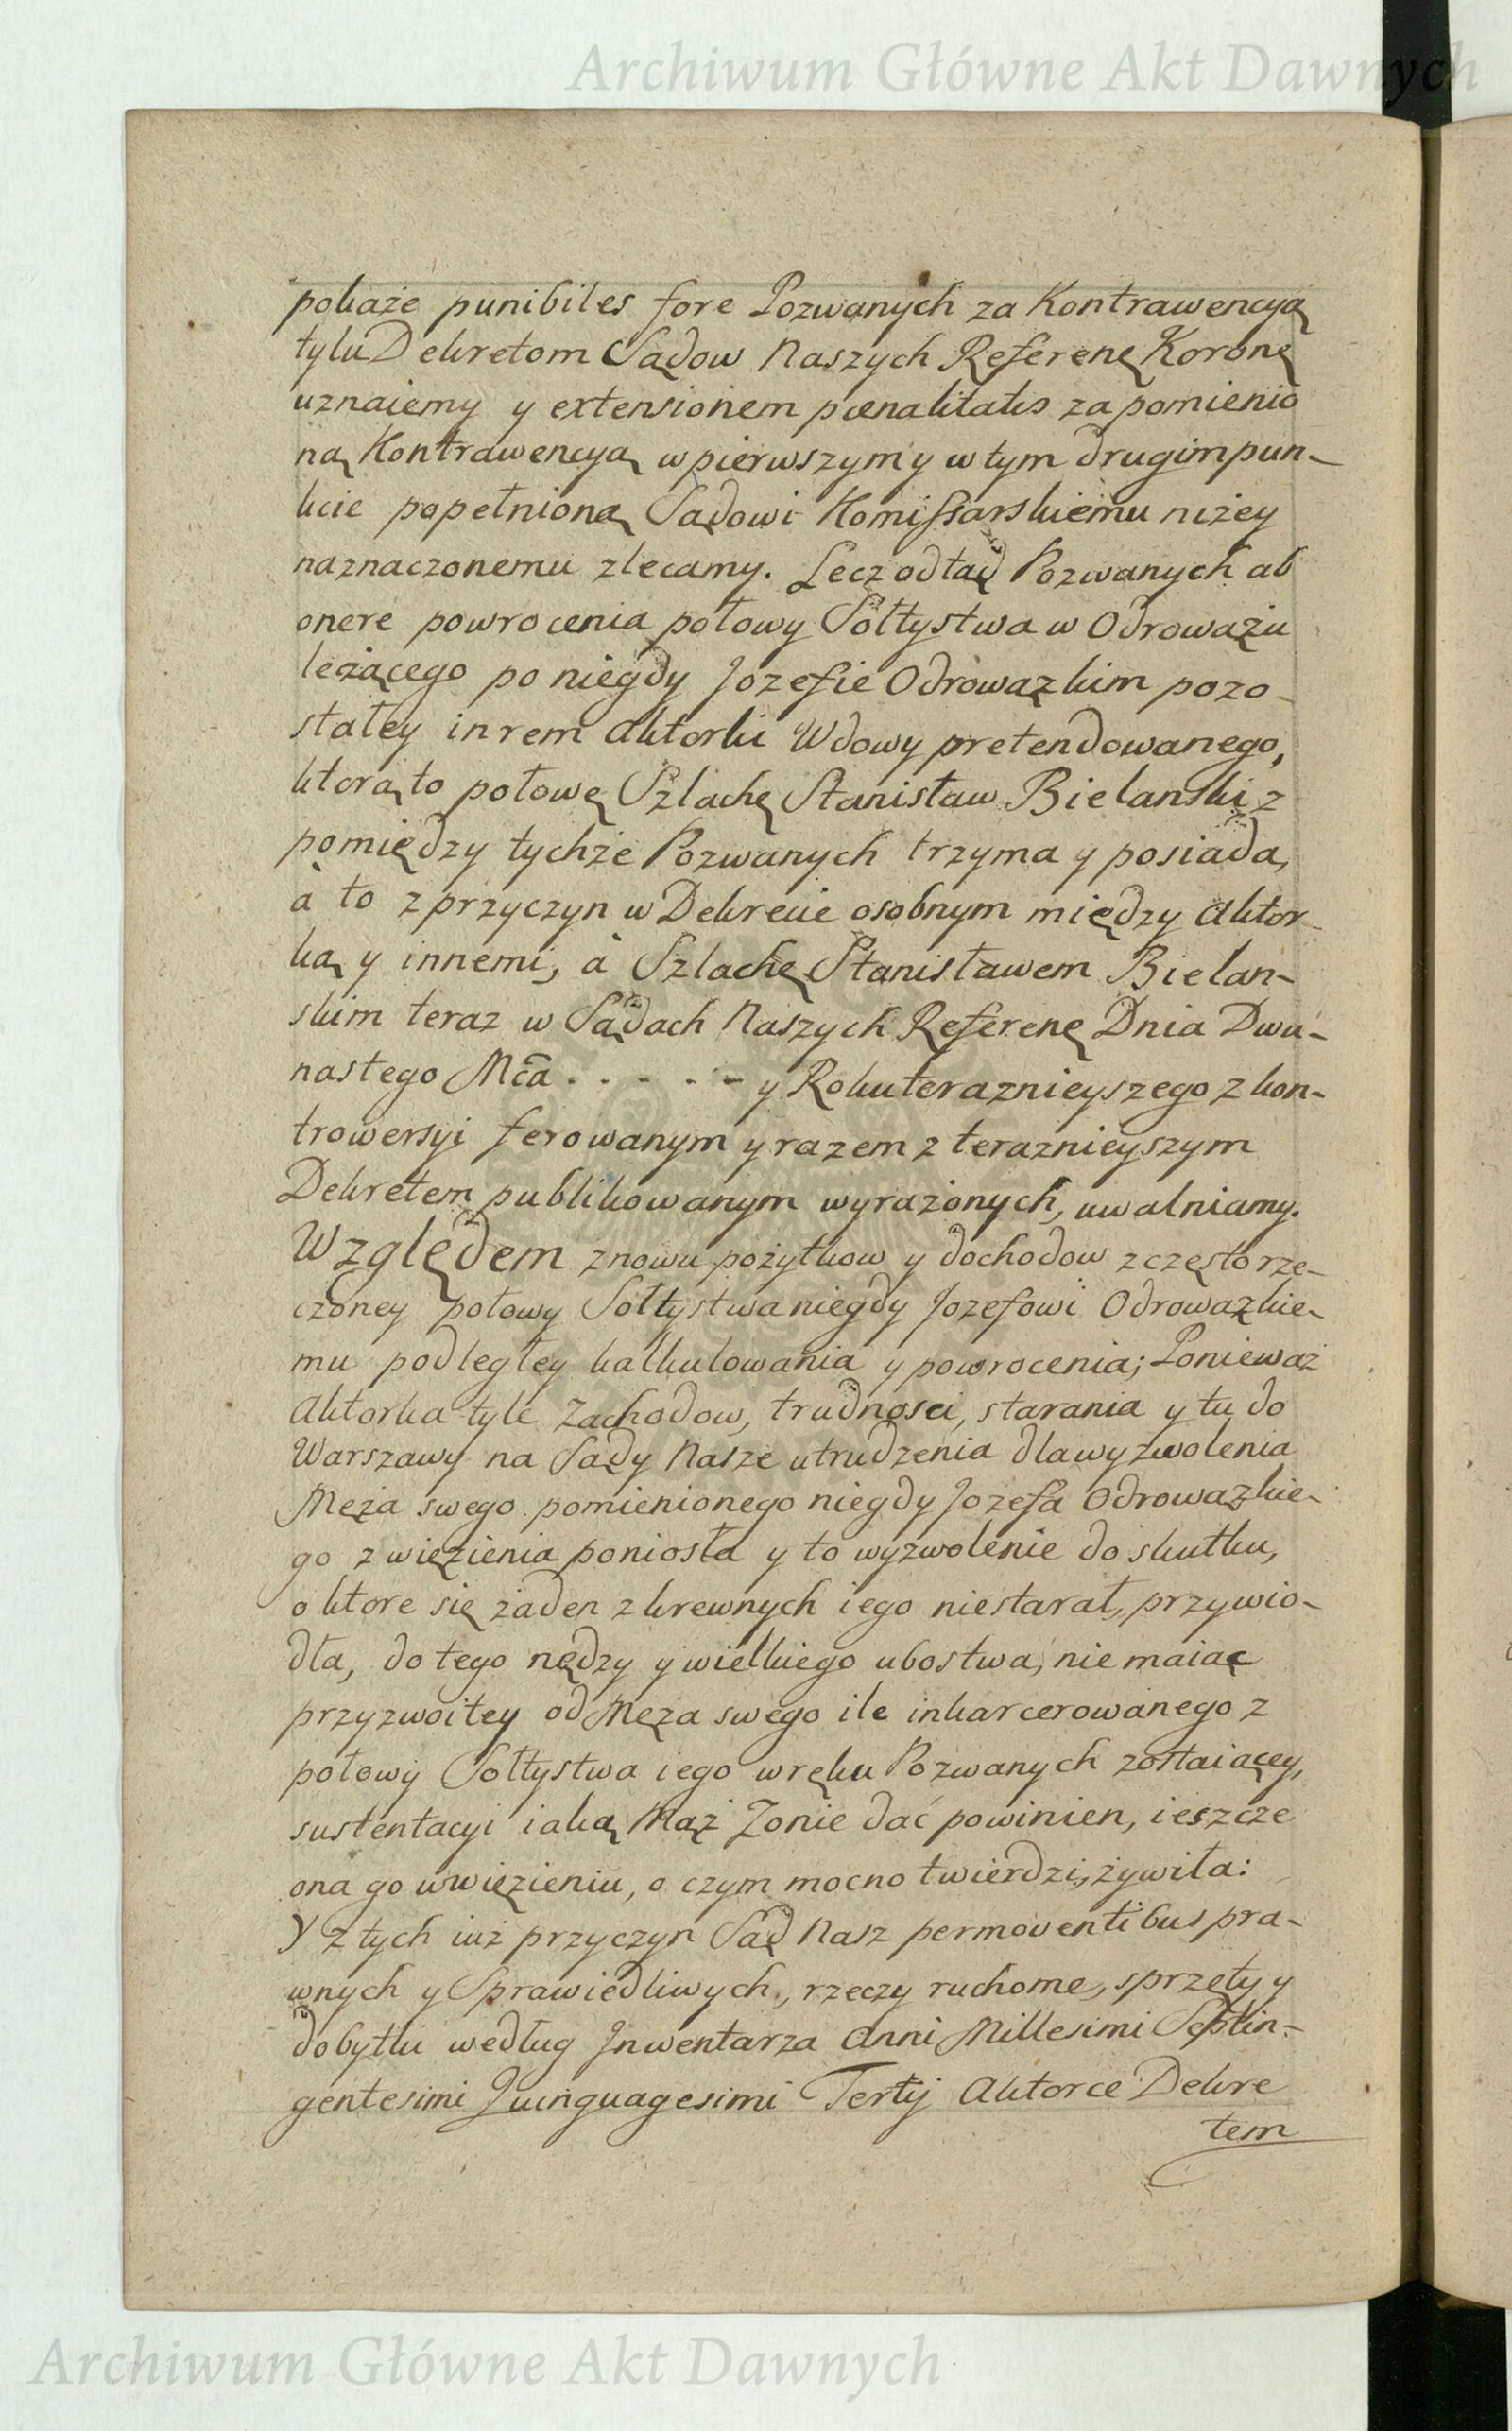 Archiwum Główne Akt Dawnych
pokaże punibiles fore Pozwanych za Kontrawencyą
tylu Dekretom Sądow Naszych Referenę Koronę
uznaiemy y extensionem pœnalitatis za pomienio
ną Kontrawencyą w pierwszym y w tym drugim pun-
kcie popełnioną Sądowi Komissarskiemu niżey
naznaczonemu zlecamy. Lecz odtąd Pozwanych ab
onere powrocenia połowy Sołtystwa w Odrowążu
leżącego po niegdy Jozefie Odrowązkim pozo-
stałey in rem Aktorki Wdowy pretendowanego,
ktorą to połowę Szlachę Stanisław Bielanski z
pomiędzy tychże Pozwanych trzyma y posiada,
à to z przyczyn w Dekrecie osobnym między Aktor-
ką y innemi, à Szlachę Stanisławem Bielan-
skim teraz w Sądach Naszych Referenę Dnia Dwu-
nastego Mca . . - . . - y Roku teraznieyszego z kon-
trowersyi ferowanym y razem z teraznieyszym
Dekretem publikowanym wyrażonych, uwalniamy.
Względem znowu pożytkow y dochodow z częstorze-
czoney połowy Sołtystwa niegdy Jozefowi Odrowązkie-
mu podległey kalkulowania y powrocenia; Ponieważ
Aktorka tyle Zachodow, trudnosci, starania y tu do
Warszawy na Sądy Nasze utrudzenia dla wyzwolenia
Męża swego pomienionego niegdy Jozefa Odrowązkie-
go z więzienia poniosła y to wyzwolenie do skutku,
o ktore się żaden z krewnych iego niestarał, przywio-
dła, do tego nędzy y wielkiego ubostwa, nie maiąc
przyzwoitey od Męża swego ile inkarcerowanego z
połowy Sołtystwa iego w ręku Pozwanych zostaiącey,
sustentacyi iaką Mąż Zonie dać powinien, ieszcze
ona go w więzieniu, o czym mocno twierdzi, żywiła:
Y z tych iuż przyczyn Sąd Nasz permoventibus pra-
wnych y Sprawiedliwych, rzeczy ruchome, sprzęty y
dobytki według Jnwentarza Anni Millesimi Septin-
gentesimi Quinquagesimi Tertij Aktorce Dekre
tem
Archiwum Główne Akt Dawnych